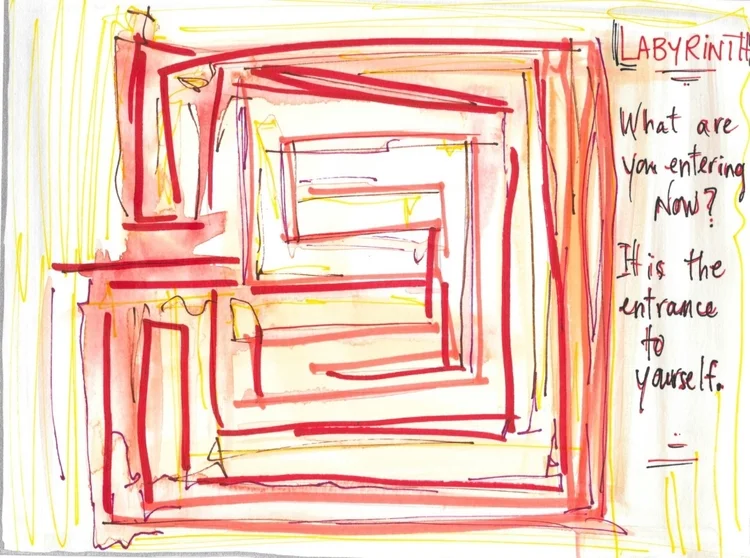 LABYRINTH
What are
you entering
Now?
It is the
entrance
to
yourself.